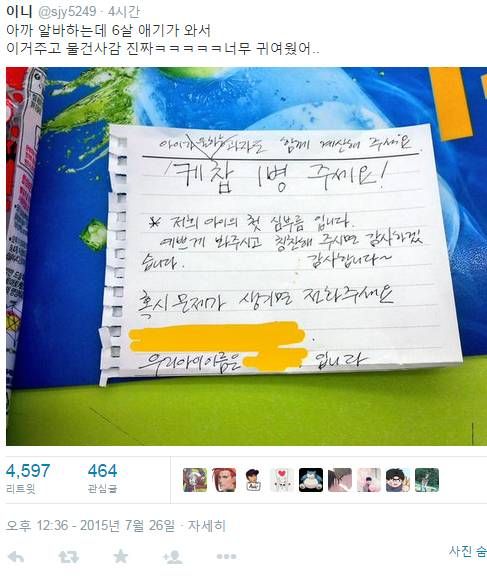 이니 @sjy5249 · 4시간
아까 알바하는데 6살 애기가 와서
이거주고 물건사감 진짜ㅋㅋㅋㅋㅋ너무 귀여웠어..
아이가 원하는 과자는 함께 계산해 주세요.
케찹 1병 주세요!
※ 저희 아이의 첫 심부름 입니다.
예쁘게 봐주시고 칭찬해 주시면 감사하겠
습니다. 감사합니다~
혹시 문제가 생기면 전화주세요
우리아이이름은 입니다
4,597 464
리트윗 관심글
오후 12:36 - 2015년 7월 26일 · 자세히
사진 숨